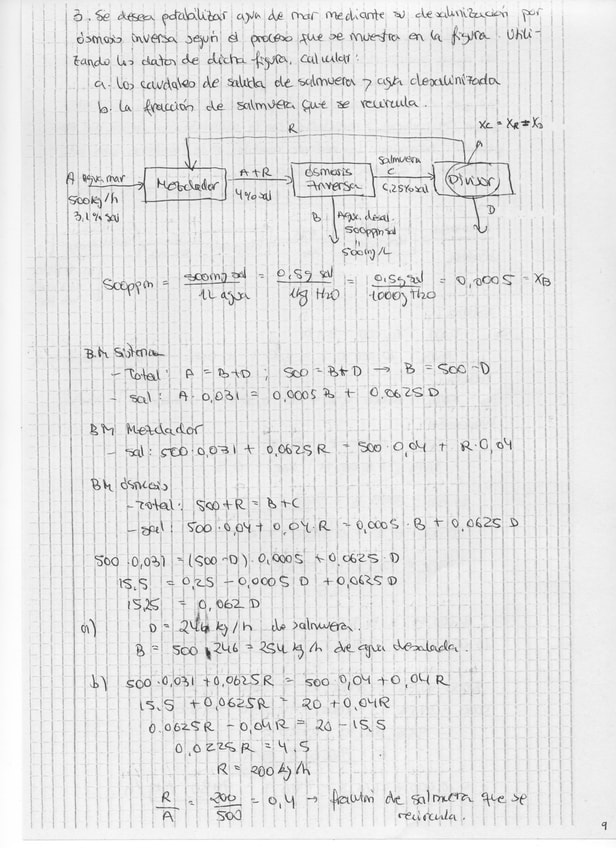 3. Se desea potabilizar agua de mar mediante su desalinización por
ósmosis inversa según el proceso que se muestra en la figura. Utili-
zando los datos de dicha figura, calcular:
a. los caudales de salida de salmuera y agua desalinizada
b. la fracción de salmuera que se recircula.
R
Xc = XR = XD
A Agua mar
500 kg/h
3,1% sal
Mezclador
A+R
4% sal
Ósmosis
Inversa
salmuera
C
6,25% sal
Divisor
D
B Agua desal.
500ppm sal
500 mg/L
500ppm = 500mg sal / 1L agua = 0,5g sal / 1kg H2O = 0,5g sal / 1000g H2O = 0,0005 = XB
B.M Sistema
- Total: A = B+D ; 500 = B+D → B = 500-D
- sal: A·0,031 = 0,0005 B + 0,0625 D
BM Mezclador
- sal: 500·0,031 + 0,0625 R = 500·0,04 + R·0,04
BM Ósmosis
- Total: 500+R = B+C
- sal: 500·0,04 + 0,04·R = 0,0005·B + 0,0625 D
500·0,031 = (500-D)·0,0005 + 0,0625·D
15,5 = 0,25 - 0,0005 D + 0,0625 D
15,25 = 0,062 D
a) D = 246 kg/h de salmuera.
B = 500 - 246 = 254 kg/h de agua desalada.
b) 500·0,031 + 0,0625R = 500·0,04 + 0,04R
15,5 + 0,0625R = 20 + 0,04R
0.0625R - 0,04R = 20 - 15,5
0,0225R = 4,5
R = 200 kg/h
R/A = 200/500 = 0,4 → fracción de salmuera que se
recircula.
9